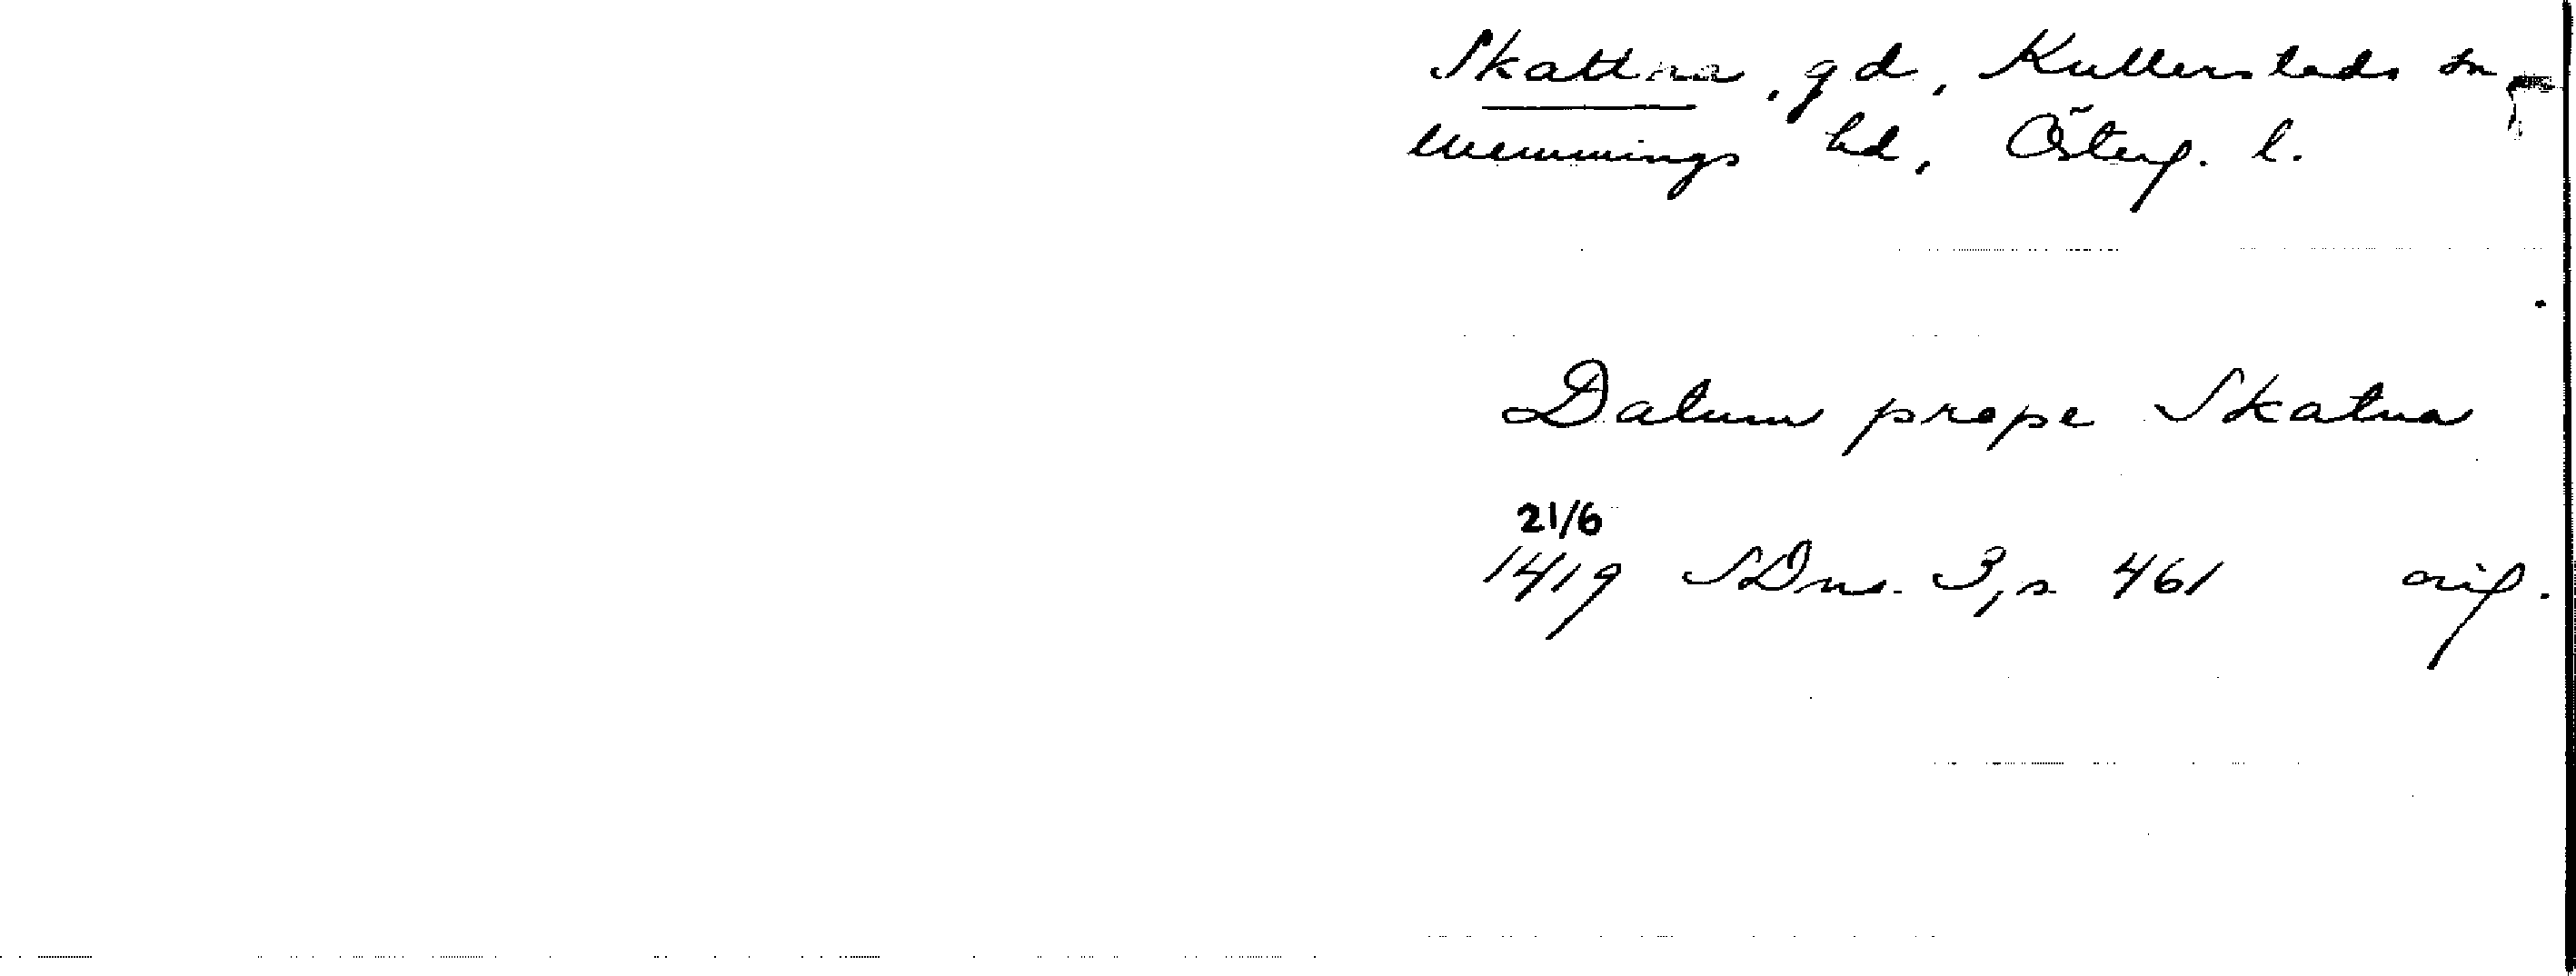 Skattna, gd, Kullerstads sn
Memmings hd, Österg. l.
Datum prope Skatna
21/6
1419 SDns. 3, s 461 orig.